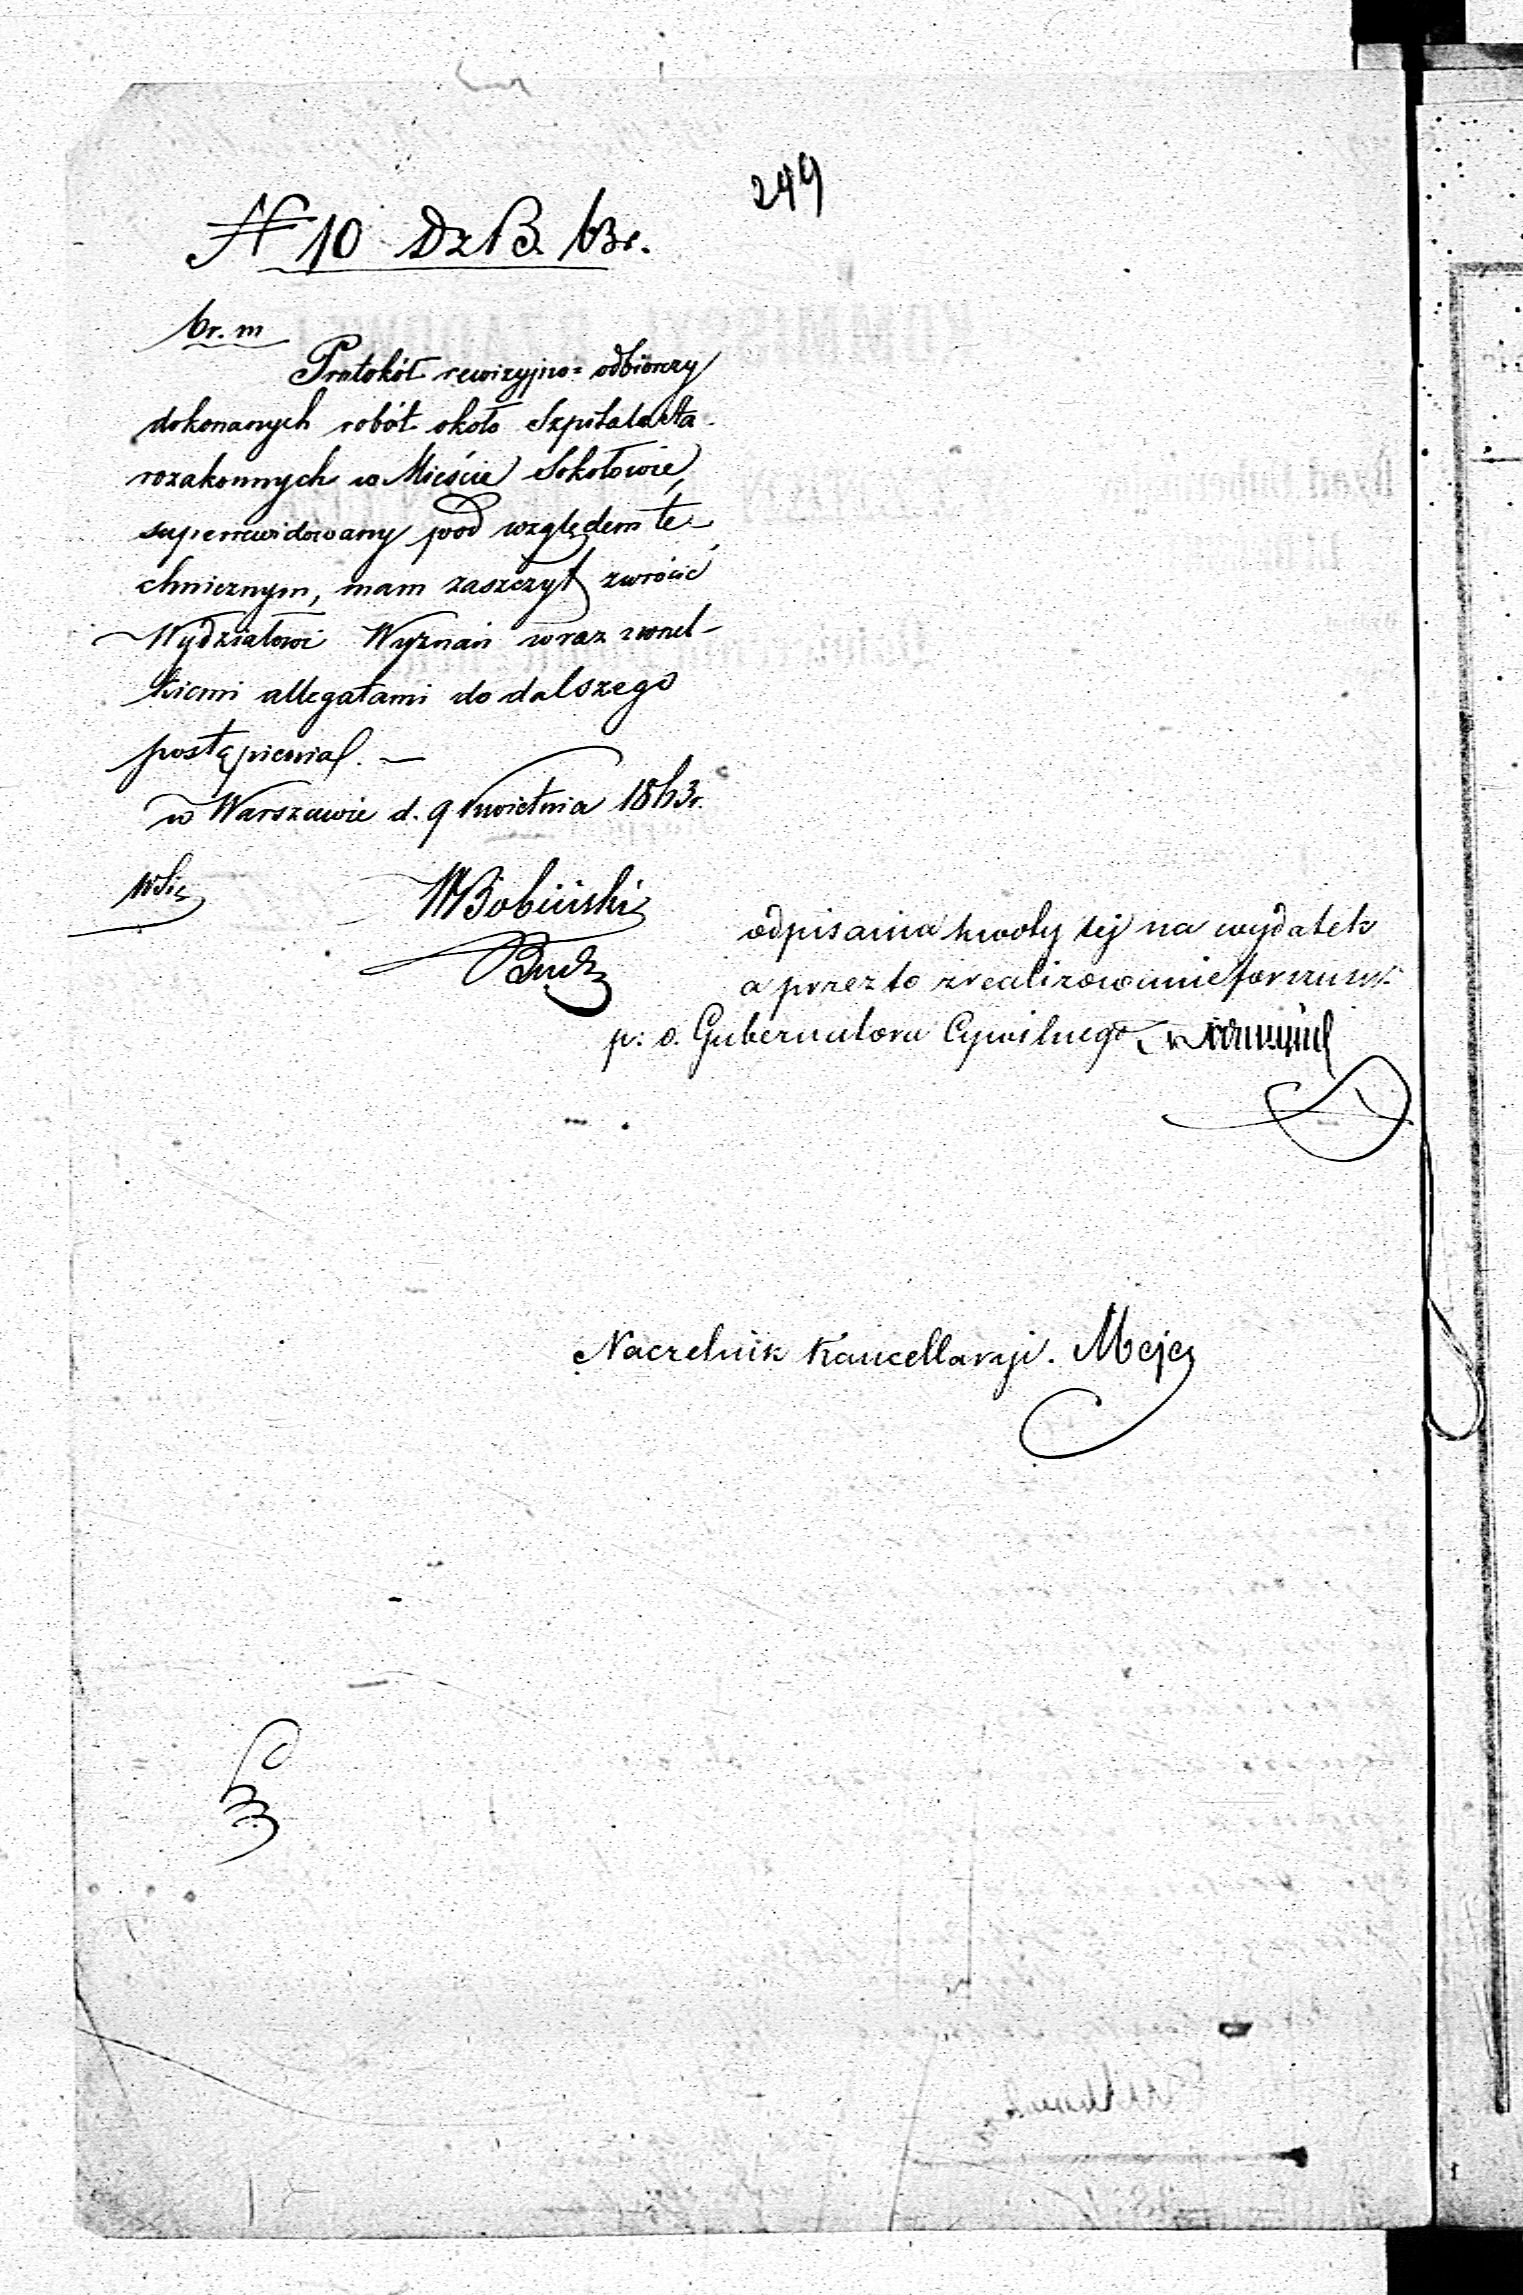 249
N 10 Dz B. 63 r.
br. m
Protokół rewizyjno= odbiorczy
dokonanych robót około Szpitala Sta-
rozakonnych w Mieście Sokołowie,
superrewidowany pod względem te-
chnicznym, mam zaszczyt zwrócić
Wydziałowi Wyznań wraz z wszel-
kiemi allegatami do dalszego
postąpienia. —
w Warszawie d. 9 Kwietnia 1863 r.
WBobiński
Bud
odpisania kwoty tej na wydatek
a przez to zrealizowanie
p. o. Gubernatora Cywilnego
Naczelnik Kancellaryi.